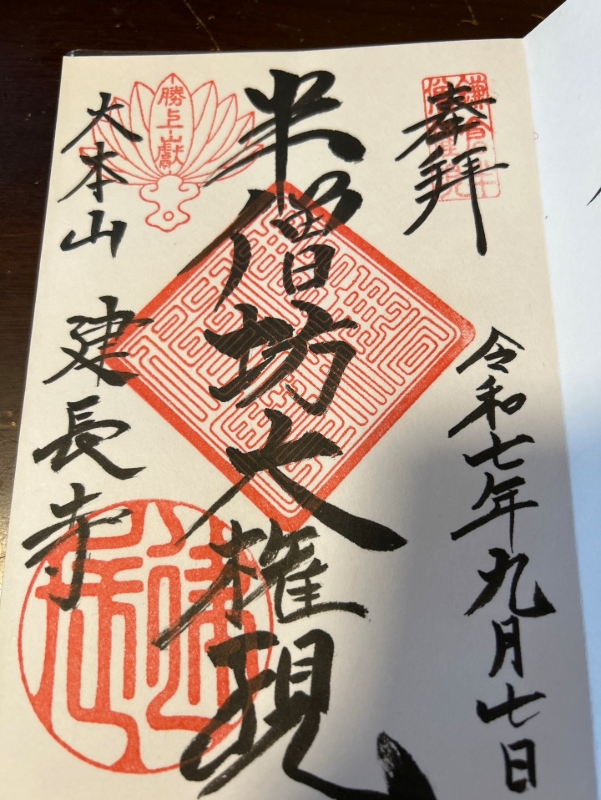 奉拝
令和七年九月七日
半僧坊大権現
勝上嶽
大本山 建長寺